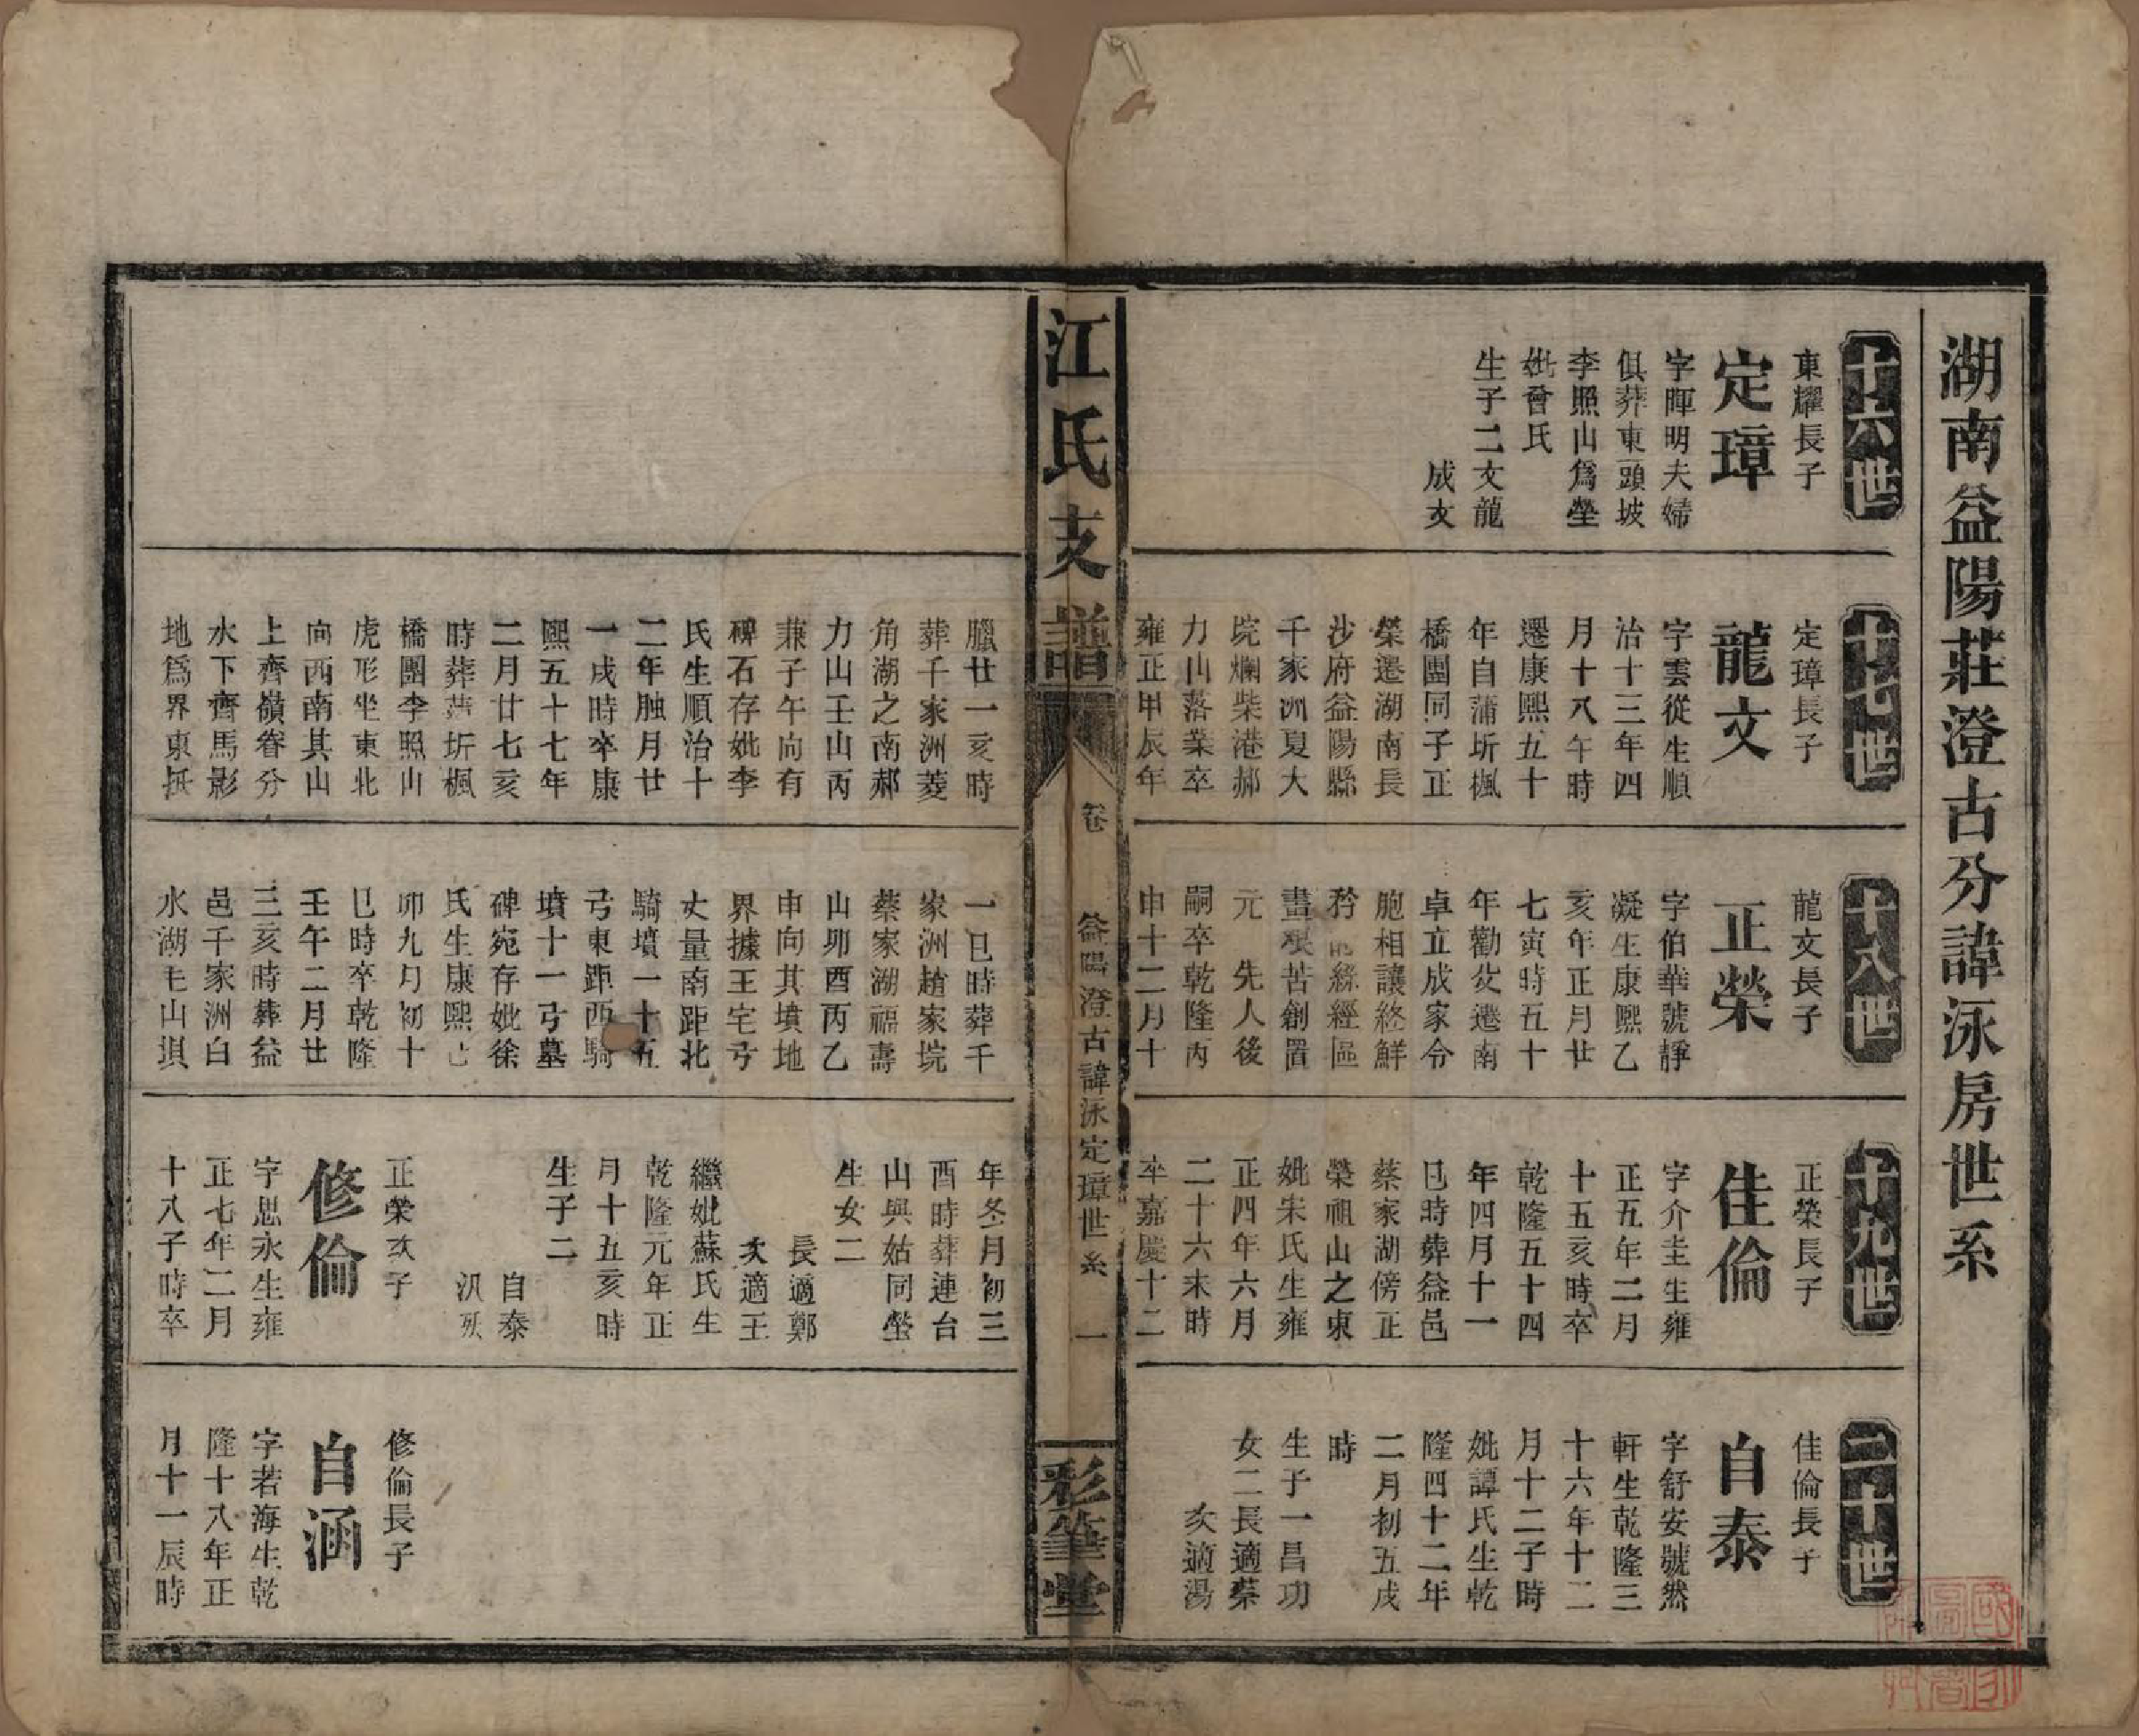 湖南益陽莊澄古分諱泳房世系
十六世
東耀長子
定璋
字暉明夫婦
俱葬東頭坡
李照山爲塋
妣曾氏
生子二文龍
成文
十七世
定璋長子
龍文
字雲從生順
治十三年四
月十八午時
遷康熙五十
年自蒲圻楓
橋團同子正
榮遷湖南長
沙府益陽縣
千家洲夏大
垸爛柴港郝
力山落業卒
雍正甲辰年
十八世
龍文長子
正榮
字伯華號靜
凝生康熙乙
亥年正月廿
七寅時五十
年勸父遷南
卓立成家令
胞相讓終鮮
矜 綜經區
畫艱苦創置
元 先人後
嗣卒乾隆丙
申十二月十
十九世
正榮長子
佳倫
字介圭生雍
正五年二月
十五亥時卒
乾隆五十四
年四月十一
巳時葬益邑
蔡家湖傍正
榮祖山之東
妣朱氏生雍
正四年六月
二十六未時
卒嘉慶十二
二十世
佳倫長子
自泰
字舒安號然
軒生乾隆三
十六年十二
月十二子時
妣譚氏生乾
隆四十二年
二月初五戌
時
生子一昌功
女二長適蔡
次適湯
江氏支譜
卷
益陽澄古諱泳定璋世系
一
彩筆堂
臘廿一亥時
葬千家洲菱
角湖之南郝
力山壬山丙
兼子午向有
碑石存妣李
氏生順治十
二年腊月廿
一戌時卒康
熙五十七年
二月廿七亥
時葬蒲圻楓
橋團李照山
虎形坐東北
向西南其山
上齊嶺脊分
水下齊馬影
地爲界東抵
一巳時葬千
家洲趙家垸
蔡家湖福壽
山卯酉丙乙
申向其墳地
界據王宅弓
丈量南距北
騎墳一十五
弓東距西騎
墳十一弓墓
碑宛存妣徐
氏生康熙己
卯九月初十
巳時卒乾隆
壬午二月廿
三亥時葬益
邑千家洲白
水湖毛山垻
年冬月初三
酉時葬連台
山與姑同塋
生女二
長適鄭
次適王
繼妣蘇氏生
乾隆元年正
月十五亥時
生子二
自泰
汎殀
正榮次子
修倫
字思永生雍
正七年二月
十八子時卒
修倫長子
自涵
字若海生乾
隆十八年正
月十一辰時